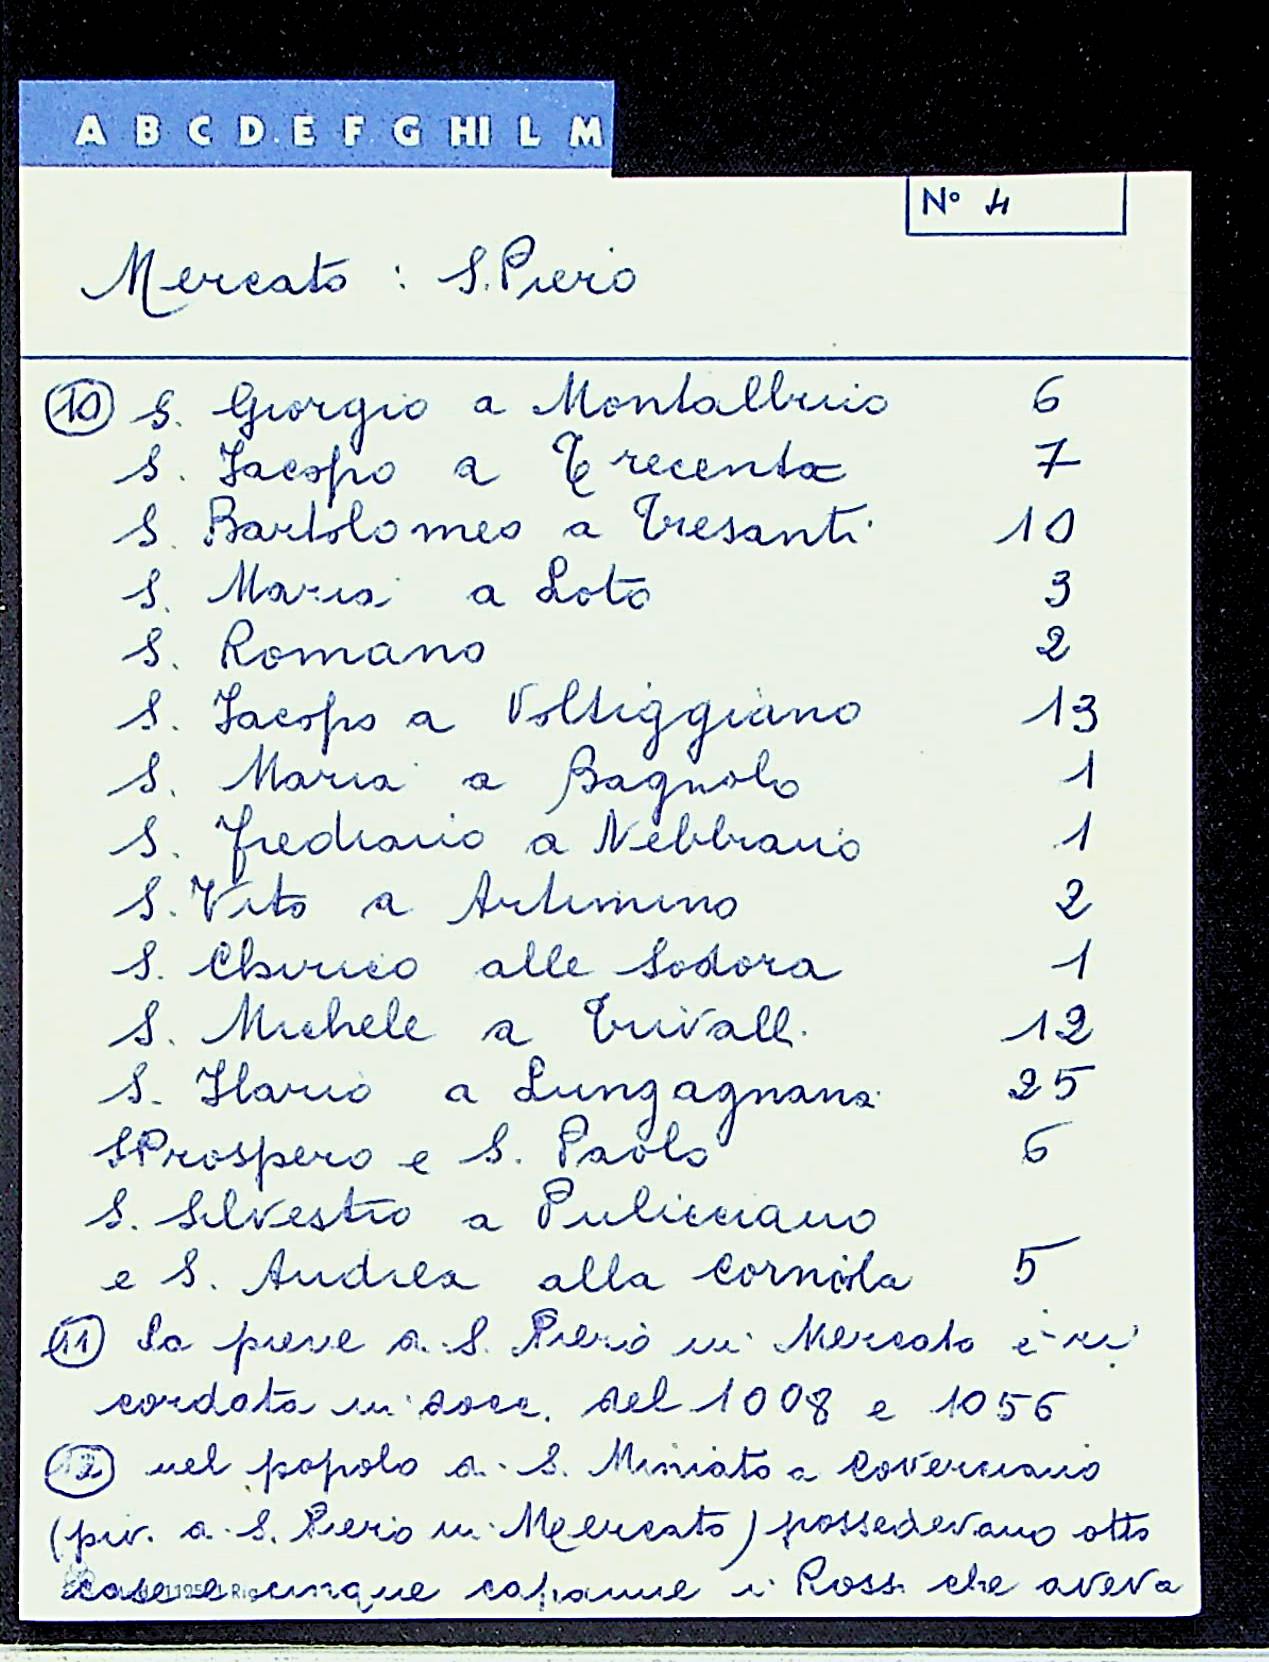 A B C D E F G HI L M
N° 4
Mercato : S. Piero
10 S. Giorgio a Montalbino 6
S. Jacopo a Trecenta 7
S. Bartolomeo a Tresanti 10
S. Maria a Loto 3
S. Romano 2
S. Jacopo a Voltiggiano 13
S. Maria a Bagnolo 1
S. Frediano a Nebbiano 1
S. Vito a Artimino 2
S. Chirico alle Sodora 1
S. Michele a Trivalli 12
S. Ilario a Lungagnana 25
S Prospero e S. Paolo 6
S. Silvestro a Pulicciano
e S. Andrea alla Corniola 5
11 La pieve di S. Piero in Mercato è ri
cordata in docc. del 1008 e 1056
12 nel popolo di S. Miniato a Coverciano
(piv. di S. Piero in Mercato) possedevano otto
case e cinque capanne i Rossi che aveva